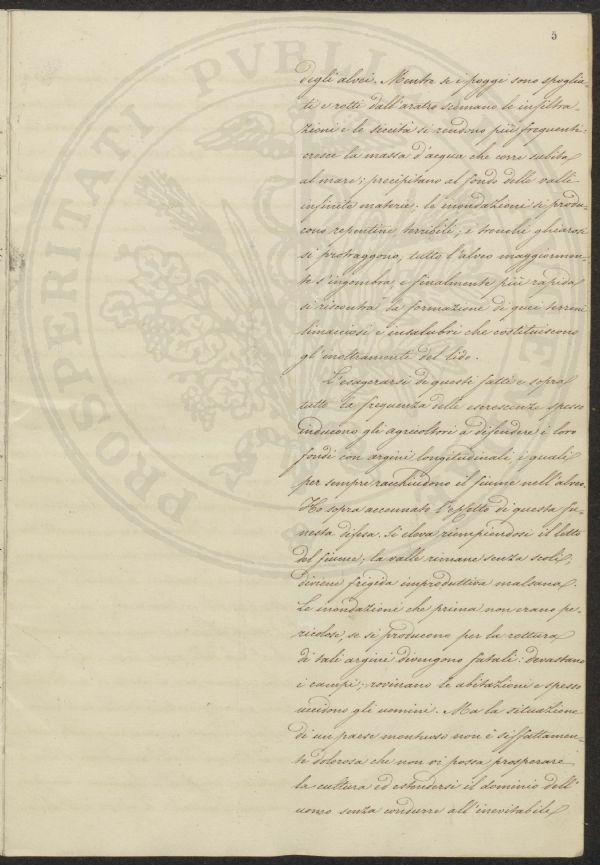 5
degli alvei. Mentre se i poggi sono spoglia-
ti e rotti dall'aratro scemano le infiltra-
zioni e le siccità si rendono più frequenti:
cresce la massa d'acqua che corre subita
al mare; precipitano al fondo delle valli
infinite materie: le inondazioni si produ-
cono repentine, terribili; i tronchi ghiarosi
si protraggono, tutto l'alveo maggiormen-
te s'ingombra, e finalmente più rapida
si riscontra la formazione di quei terreni
limacciosi e insalubri che costituiscono
gl'inoltramenti del lido.
L'esagerarsi di questi fatti e sopra
tutto la frequenza delle escrescenze spesso
inducono gli agricoltori a difendere i loro
fondi con argini longitudinali i quali
per sempre racchiudono il fiume nell'alveo.
Ho sopra accennato l'effetto di questa fu-
nesta difesa. Si eleva riempiendosi il letto
del fiume; la valle rimane senza scoli,
diviene frigida improduttiva malsana.
Le inondazioni che prima non erano pe-
ricolose, se si producono per la rottura
di tali argini divengono fatali: devastano
i campi; rovinano le abitazioni e spesso
uccidono gli uomini. Ma la situazione
di un paese montuoso non è siffattamen-
te dolorosa che non vi possa prosperare
la cultura ed estendersi il dominio dell'
uomo senza condurre all'inevitabile
PROSPERITATI PVBLICAE